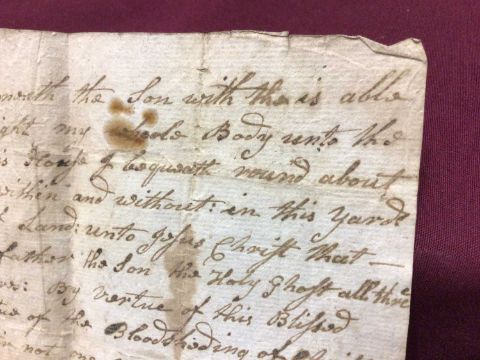 neath the Son with the is able
ight my whole Body unto the
is House I bequeath round about
within and without: in this yard
Land: unto Jesus Christ that —
father the Son the Holy Ghost all thre
: By vertue of this Blessed
tue of the Bloodsheding of
not one